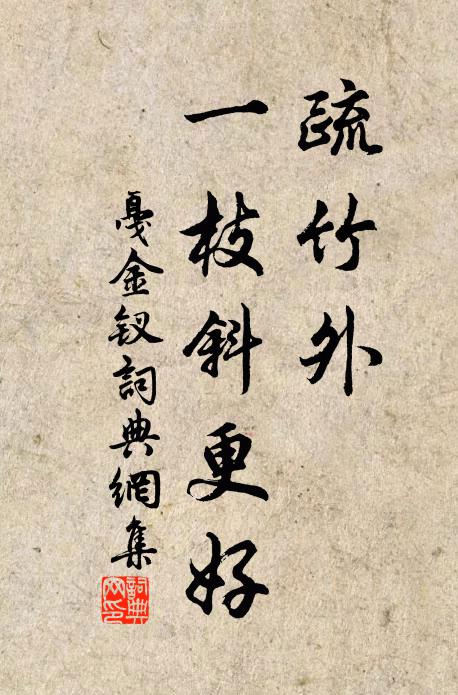 疏竹外
一枝斜更好
戛金釵詞典網集
詞典
网印